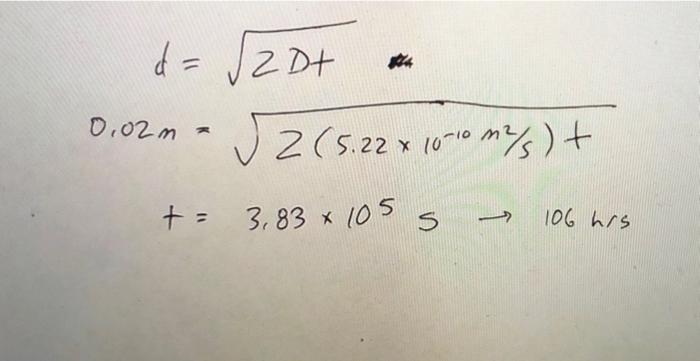 d = √2Dt
0.02m = √2(5.22 × 10⁻¹⁰ m²/s)t
t = 3.83 × 10⁵ s → 106 hrs